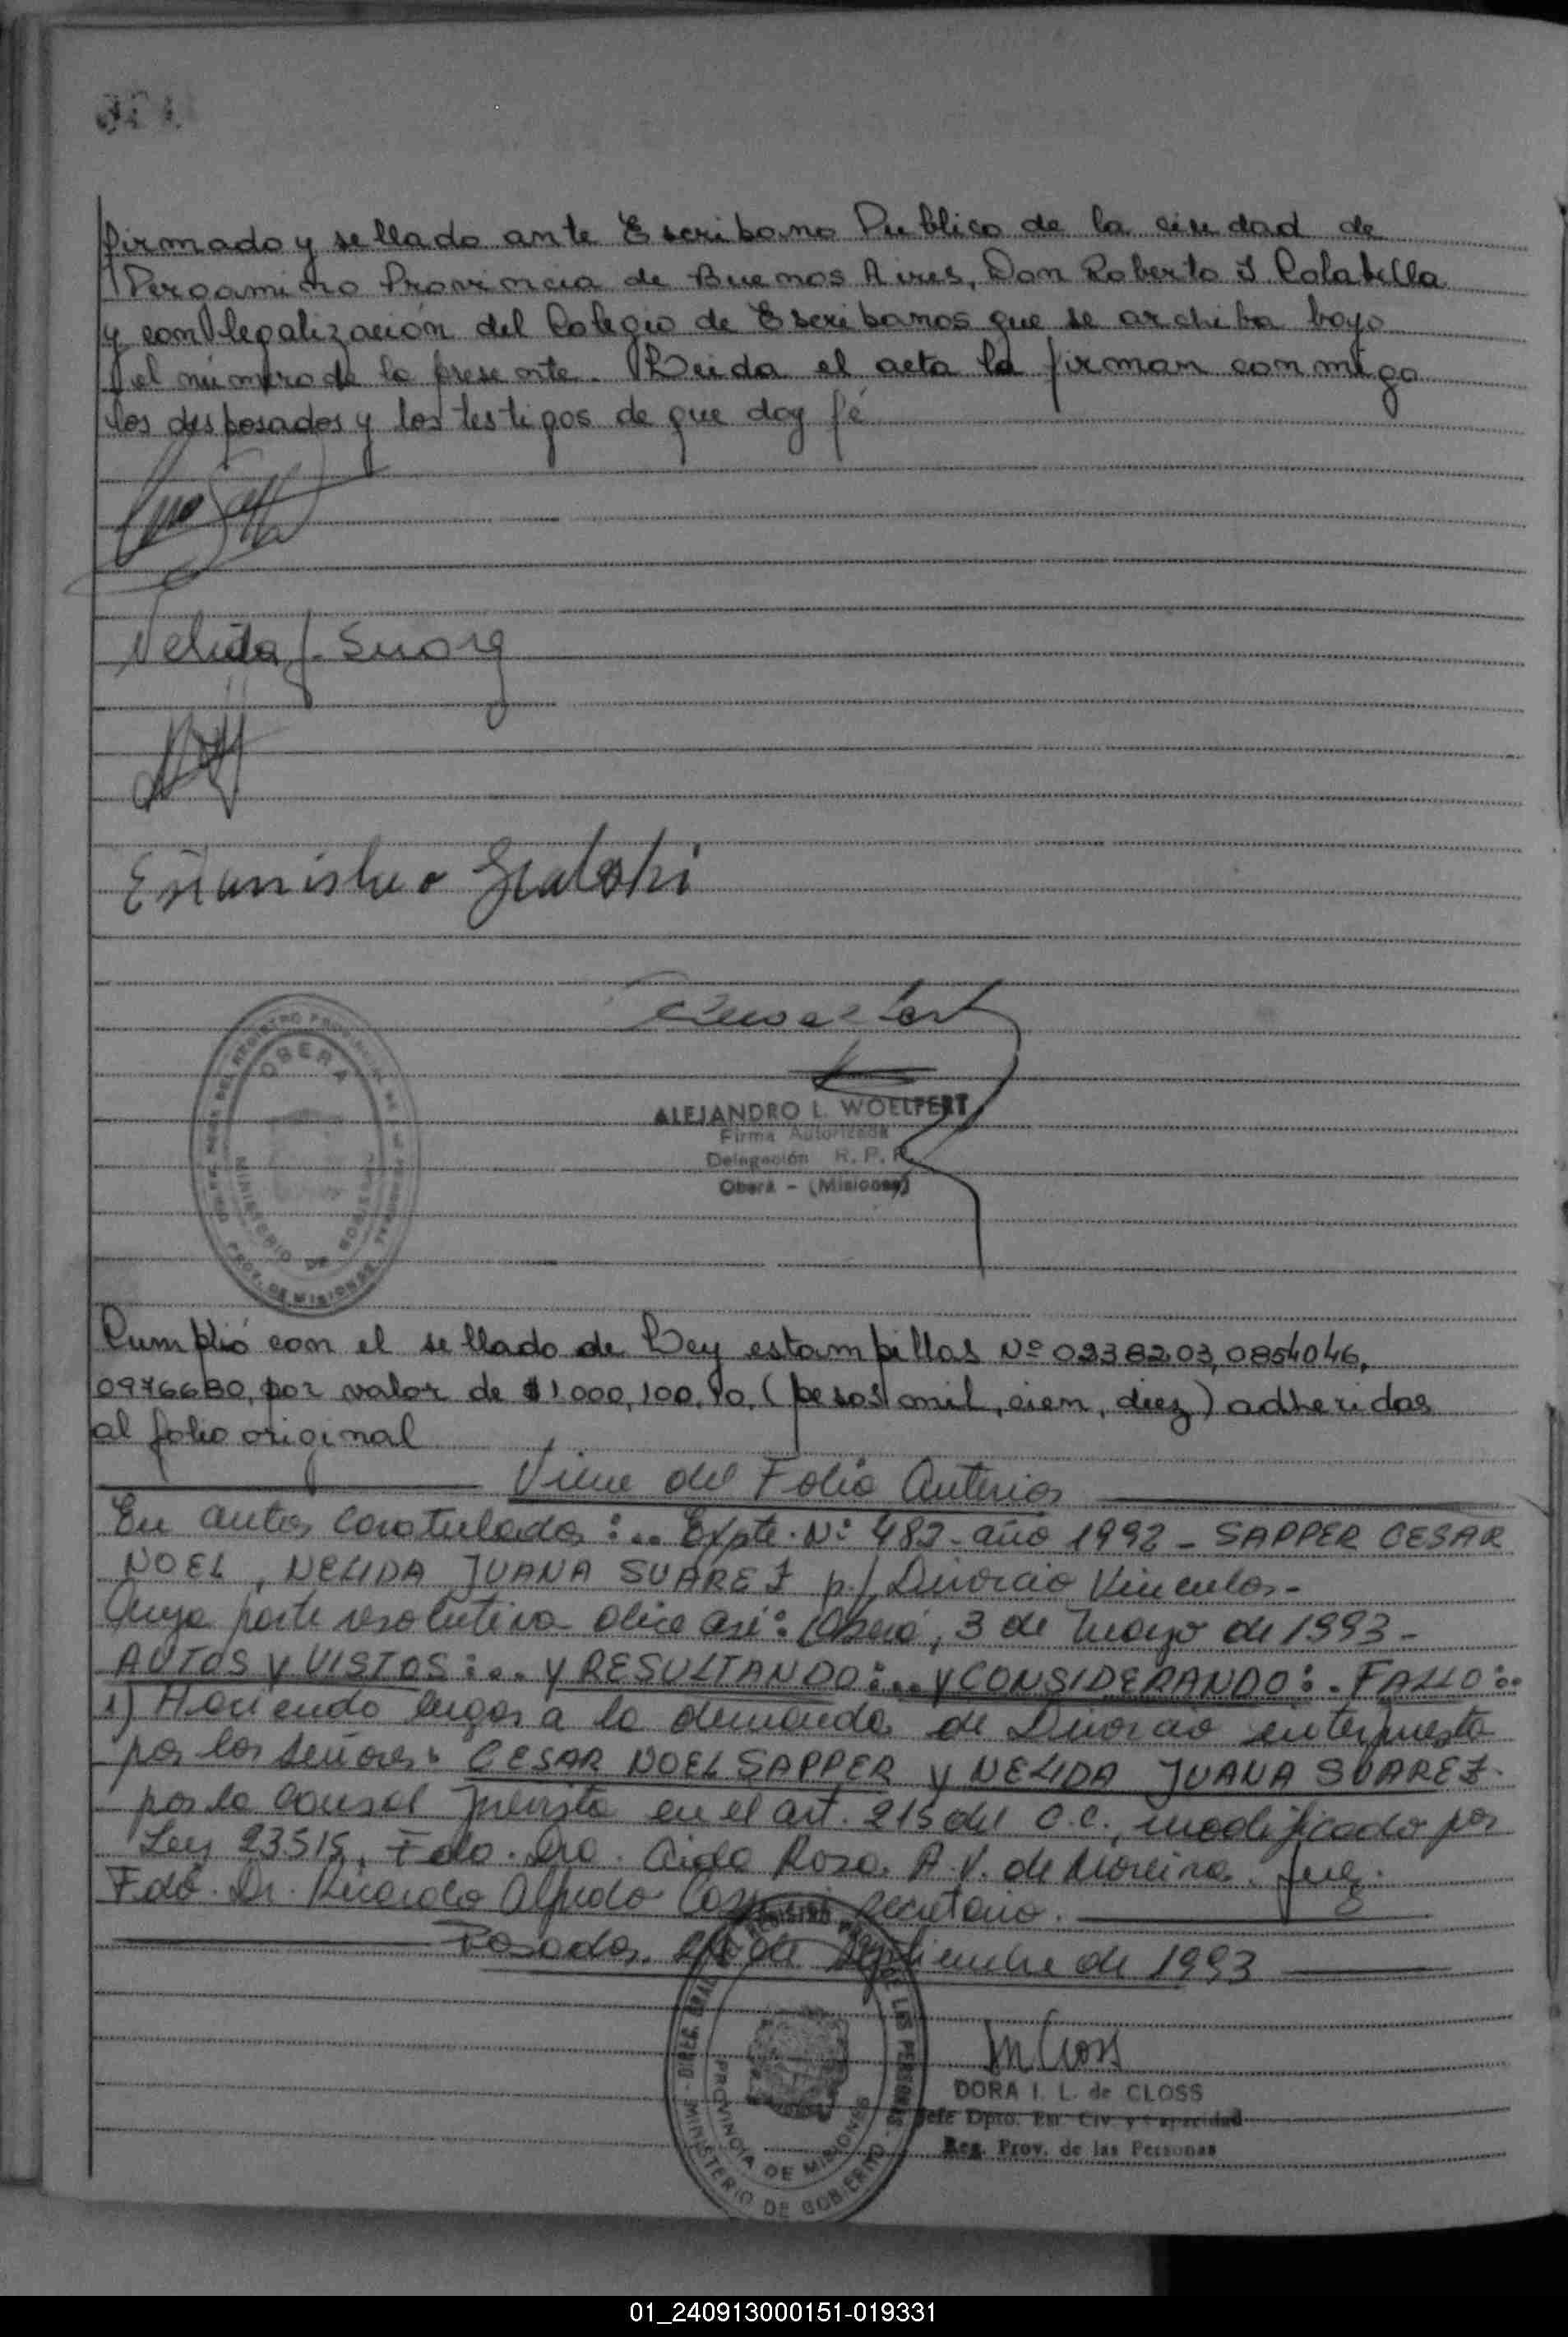 firmado y sellado ante Escribano Publico de la ciudad de
Pergamino Provincia de Buenos Aires, Don Roberto J. Colabella
y con legalización del Colegio de Escribanos que se archiba bayo
el número de la presente. Leida el acta la firman conmigo
los desposados y los testigos de que doy fé
Nelida J. Suarez
Estanislao
OBERA
MINISTERIO DE
PROV. DE MISIONES
ALEJANDRO L. WOELFERT
Firma Autorizada
Delegación R. P. P.
Oberá - (Misiones)
Cumplió con el sellado de Ley estampillas Nº 0938203, 0854046,
0976680, por valor de $1000, 100, 10, (pesos mil, cien, diez) adheridas
al folio original
Viene del Folio Anterior
En autos caratulados:.. Expte. Nº 482 - año 1992 - SAPPER CESAR
NOEL, NELIDA JUANA SUAREZ p./ Divorcio Vincular.-
Cuya parte resolutiva dice así: Oberá, 3 de Mayo de 1993 -
AUTOS Y VISTOS:... Y RESULTANDO:... Y CONSIDERANDO:. FALLO:..
1) Haciendo lugar a la demanda de Divorcio interpuesta
por los señores CESAR NOEL SAPPER Y NELIDA JUANA SUAREZ.
por la causal prevista en el art. 215 del C.C., modificado por
Ley 23515. Fdo. Dra. Aida Rosa A. V. de Moreira. Juez.
Fdo. Dr. Ricardo Alfredo Secretario.
Posadas, de Septiembre de 1993
LAS PERSONAS
PROVINCIA DE MISIONES
MINISTERIO DE GOBIERNO
M Closs
DORA I. L. de CLOSS
Jefe Dpto. Est. Civ. y Capacidad
Reg. Prov. de las Personas
01_240913000151-019331